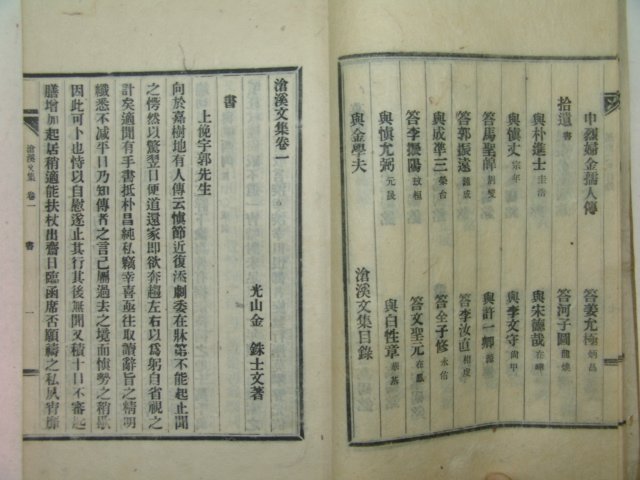 申烈婦金孺人傳
拾遺 書
與朴進士 圭浩 答姜允極 炳昌
與愼丈 宗年 答河子圖 龍煥
答馬聖暐 與宋德哉 在
答郭振遠 鍾成 與李文守 尙甲
答李擾陽 致桓 與許一卿
與成準三 榮台 答李汝直 相虔
與愼尤弼 元晟 答全子修 永佑
與金學夫 答文聖元 在鳳
與白性章 華基
滄溪文集目錄
滄溪文集卷一
光山金 銖士文著
書
上俛宇郭先生
向於嘉樹地有人傳云愼節近復添劇委在牀第不能起止聞
之愕然以驚翌日便道還家卽欲奔趨左右以爲躬自省視之
計矣適聞有手書抵朴昌純私竊幸喜亟往取讀辭旨之精明
纖悉不减平日乃知傳者之言已屬過去之境而愼勢之稍歇
因此可卜也恃以自慰遂止其行其後無聞又積十日不審起
膳增加起居稍適能扶杖出齋日臨函席否願禱之私夙宵靡
滄溪文集 卷一 書 一